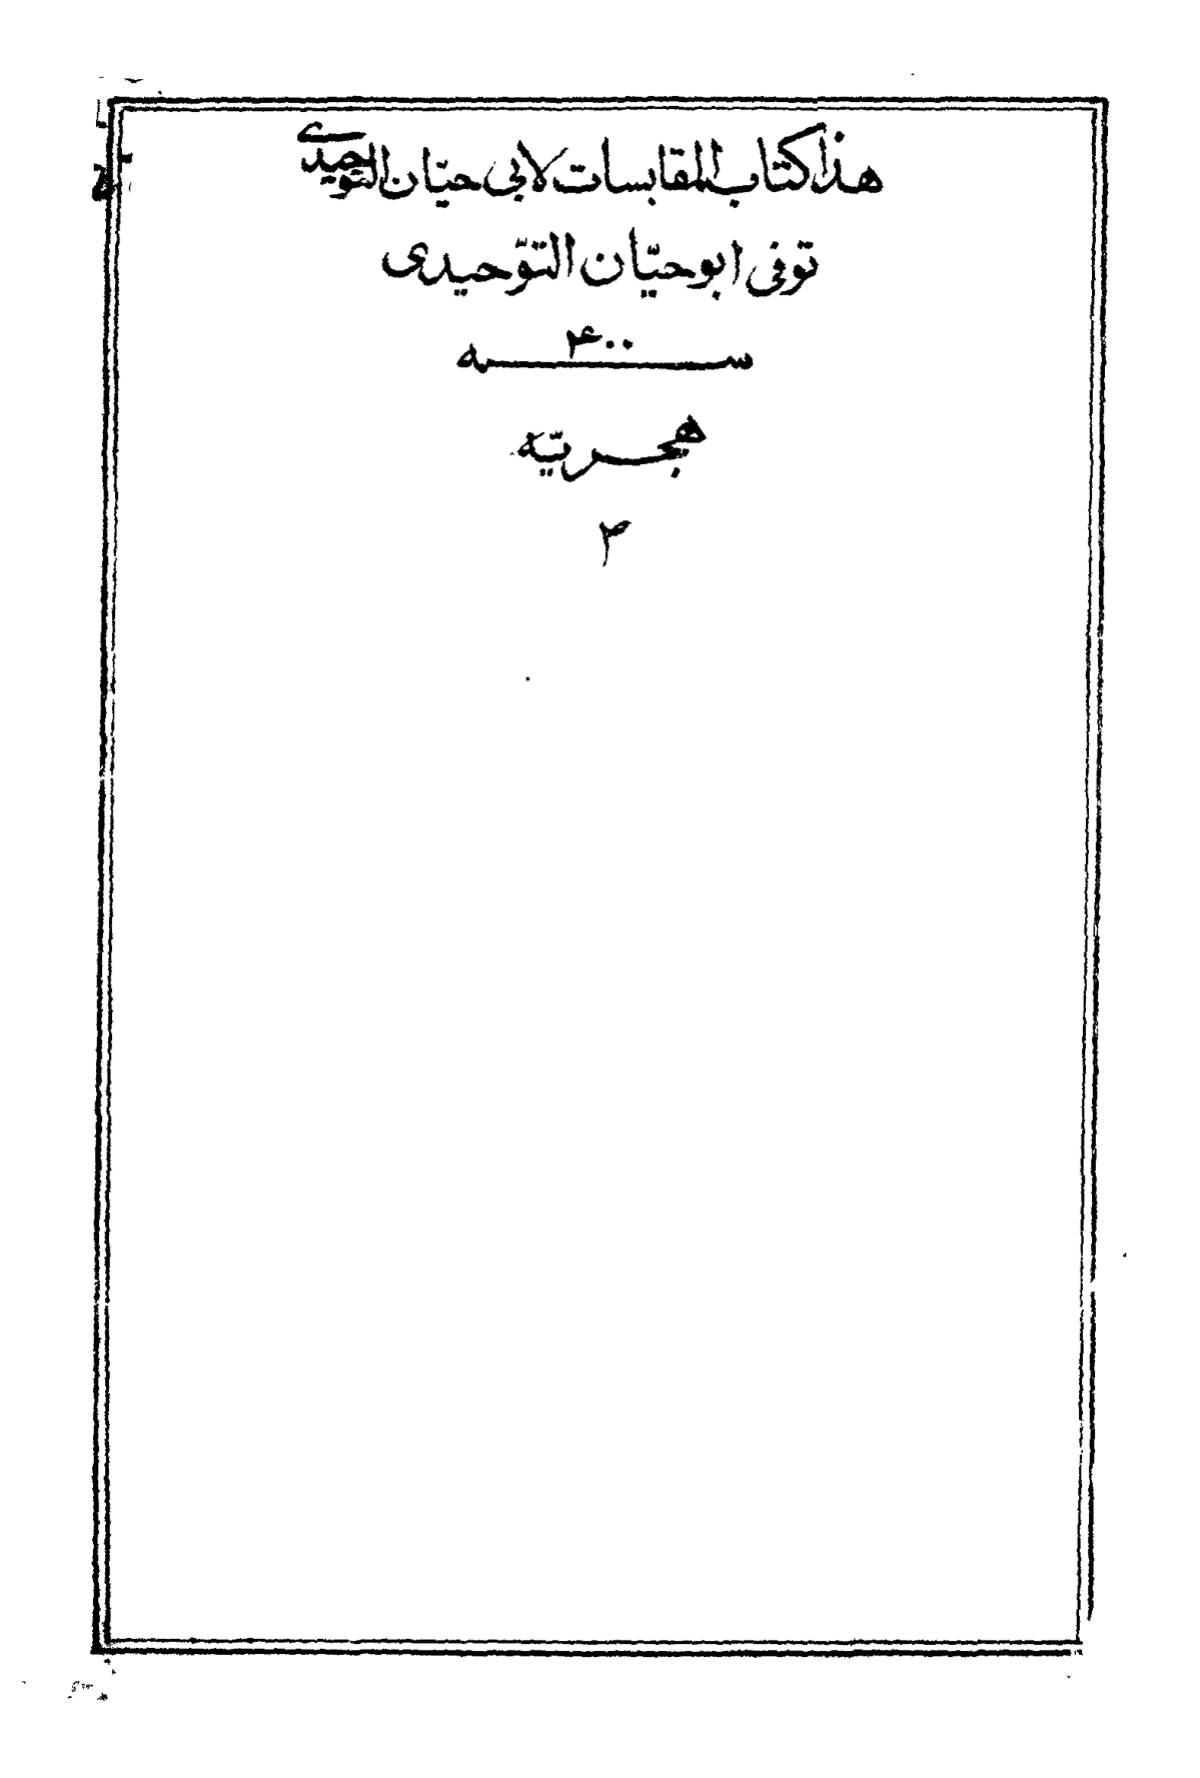 هذا كتاب المقابسات لابي حيّان التوحيدى
توفى ابو حيّان التوّحيدى
۴۰۰
سـنـه
هجريّه